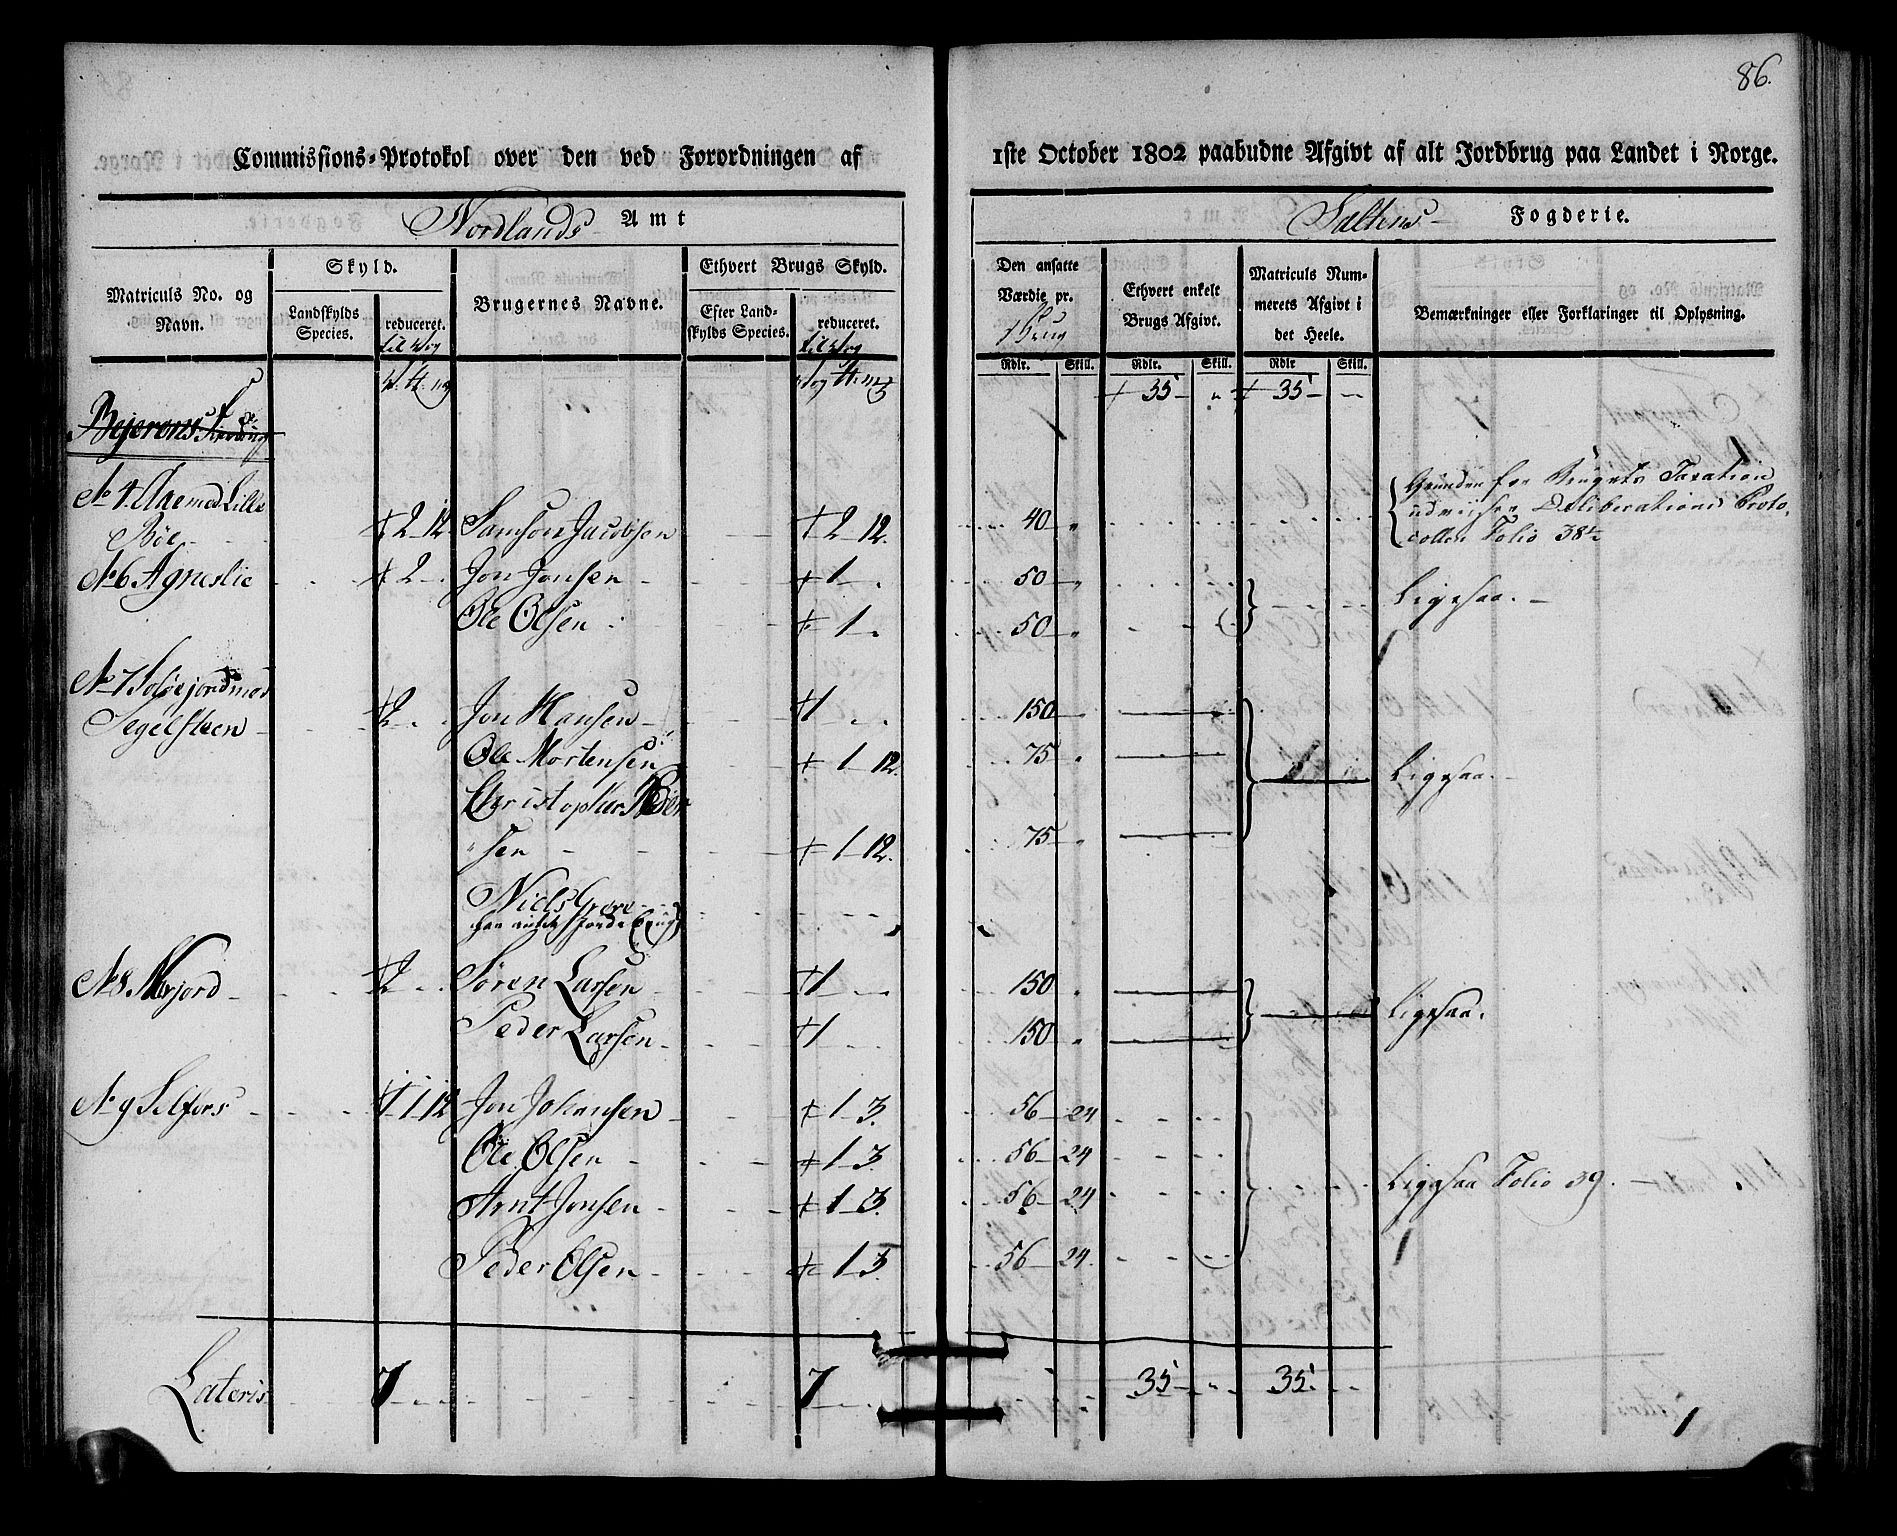 86.
Commissions-Protokol over den ved Forordningen af 1ste October 1802 paabudne Afgivt af alt Jordbrug paa Landet i Norge.
Nordlands Amt Saltens Fogderie.
Matriculs No. og Navn.
Skyld.
Landskylds Species.
reduceret. til Vog
Brugernes Navne.
Ethvert Brugs Skyld.
Efter Landskylds Species.
reduceret. til Vog
Den ansatte Værdie pr. Brug
Rdlr. Skill.
Ethvert enkelt Brugs Afgivt.
Rdlr. Skill.
Matriculs Nummerets Afgivt i det Heele.
Rdlr Skill.
Bemærkninger eller Forklaringer til Oplysning.
35 " 35 -
Bejerens
No 4 Aae med Lille
Bøe 2 12 Samson Jacobsen 2 12. 40 "
Grunden for Brugets Taxation
udviiser Deliberations Proto-
collen Folio 38
No 6 Agneslie 2 Jon Jonsen 1 50 "
Ole Olsen 1 50 "
Ligesaa.
No 7 Soløejord med
Segelsteen 2 Jon Hansen 1 150
Ole Mortensen 1 12. 75
Christopher
sen 1 12. 75
Ligesaa.
Niels
No 8 Moejord 2 Søren Larsen 1 150
Peder Larsen 1 150
Ligesaa.
No 9 Selfors 1 12 Jon Johansen 1 3. 56 24
Ole Olsen 1 3 56 24
Arnt Jonsen 1 3. 56 24
Peder Olsen 1 3 56 24.
Ligesaa Folio 39.
Lateris 7 7 35 35